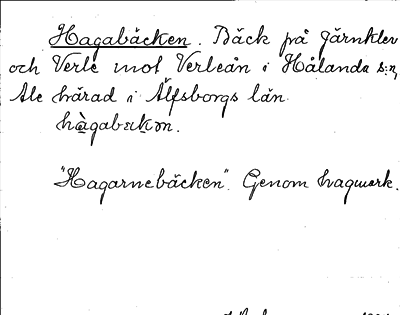 Hagabäcken. Bäck på Järnklev
och Verle mot Verleån i Hålanda s:n,
Ale härad i Älfsborgs län.
"Hagarnebäcken". Genom hagmark.